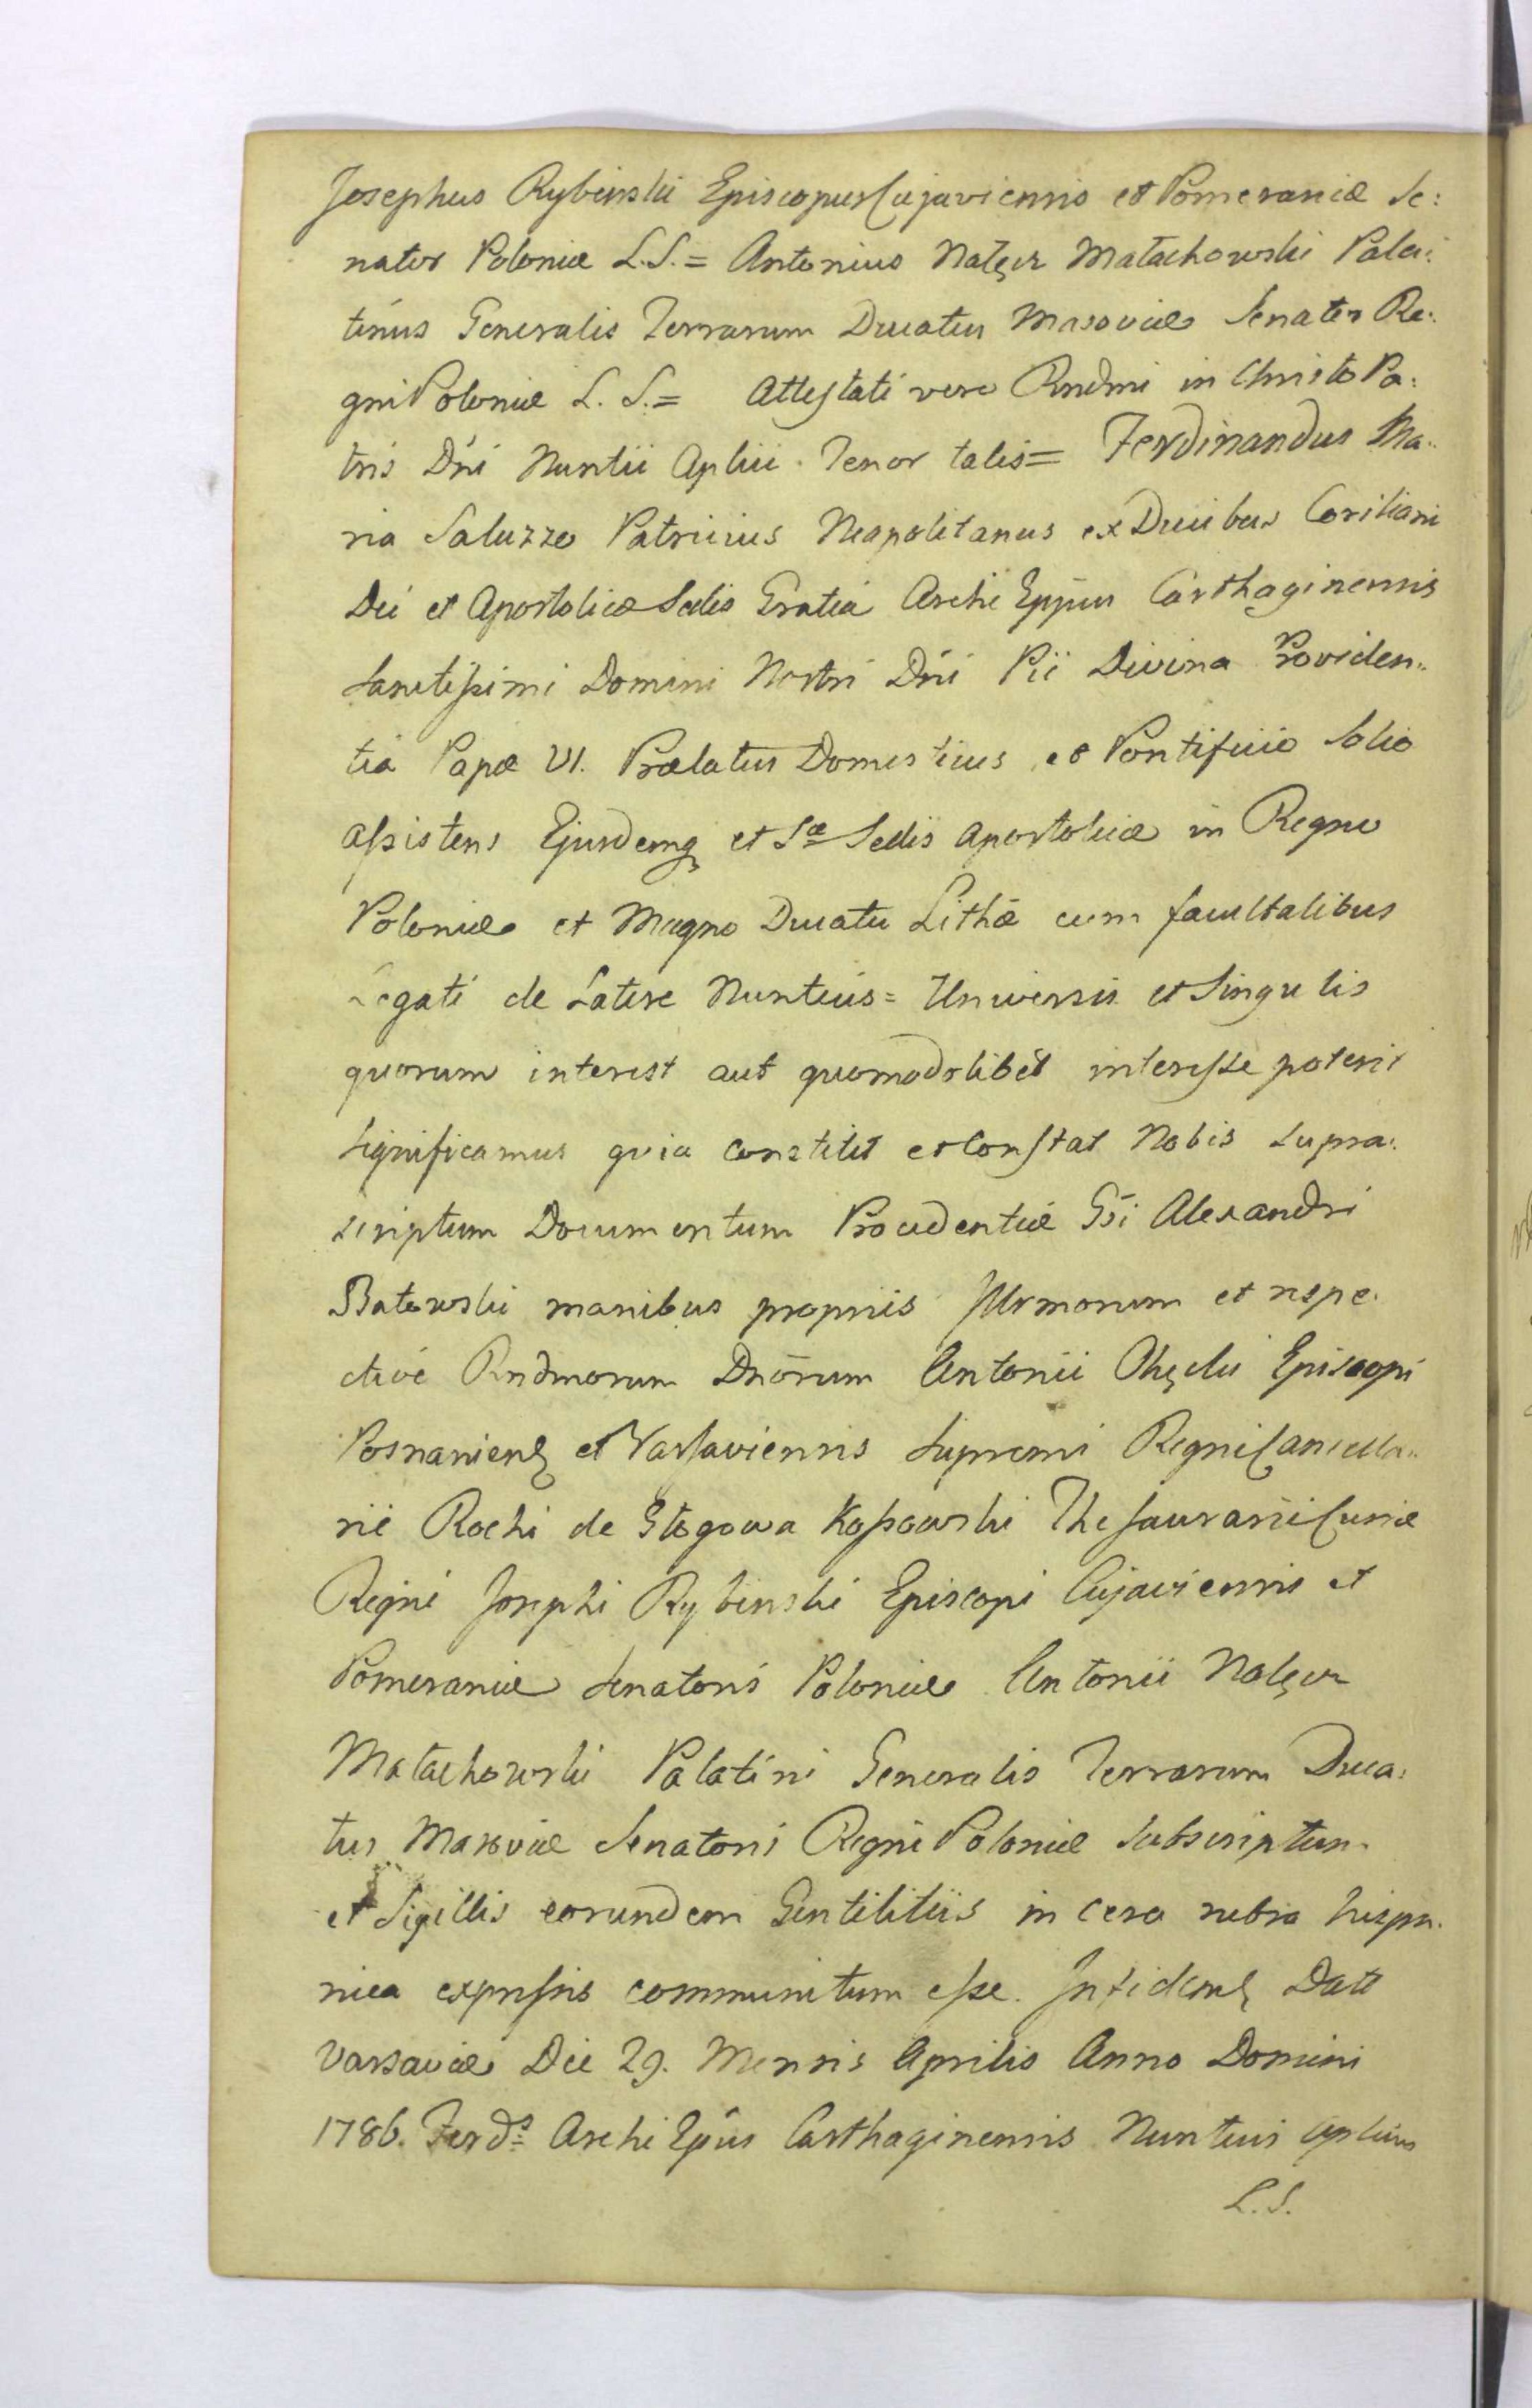 Josephus Rybinski Episcopus Cujaviensis et Pomeraniæ Se:
nator Poloniæ L.S.= Antonius Nałęcz Małachowski Pala:
tinus Generalis Terrarum Ducatus Masoviæ Senator Re:
gni Poloniæ L. S.= Attestati vero Rndmi in Christo Pa:
tris Dni Nuntii Aplici Tenor talis= Ferdinandus Ma:
ria Saluzzo Patricius Neapolitanus ex Ducibus Coriliani
Dei et Apostolicæ Sedis Gratia Archi Eppus Carthaginensis
Sanctissimi Domini Nostri Dni Pii Divina Providen:
tia Papæ VI. Prælatus Domesticus et Pontificio Solio
Assistens Ejusdemq et Sæ Sedis Apostolicæ in Regno
Poloniæ et Magno Ducatu Lithæ cum facultatibus
Legati de Latere Nuntius= Universis et Singulis
quorum interest aut quomodolibet interesse poterit
Significamus quia constitit et Constat Nobis Supra:
scriptum Documentum Procedentiæ Gsi Alexandri
Batowski manibus propriis Illrmorum et respe:
ctive Rndmorum Dnorum Antonii Okęcki Episcopi
Posnaniens et Varsaviensis Supremi Regni Cancella:
rii Rochi de Głogowa Kossowski Thesaurarii Curiæ
Regni Josephi Rybinski Episcopi Cujaviensis et
Pomeraniæ Senatoris Poloniæ Antonii Nałęcz
Małachowski Palatini Generalis Terrarum Duca:
tus Masoviæ Senatoris Regni Poloniæ Subscriptum
et Sigillis eorundem Gentilitiis in cera rubra hispa:
nica expressis communitum esse. In fidem Datt
Varsaviæ Die 29. Mensis Aprilis Anno Domini
1786. Ferds Archi Epus Carthaginensis Nuntius Aplicus
L.S.